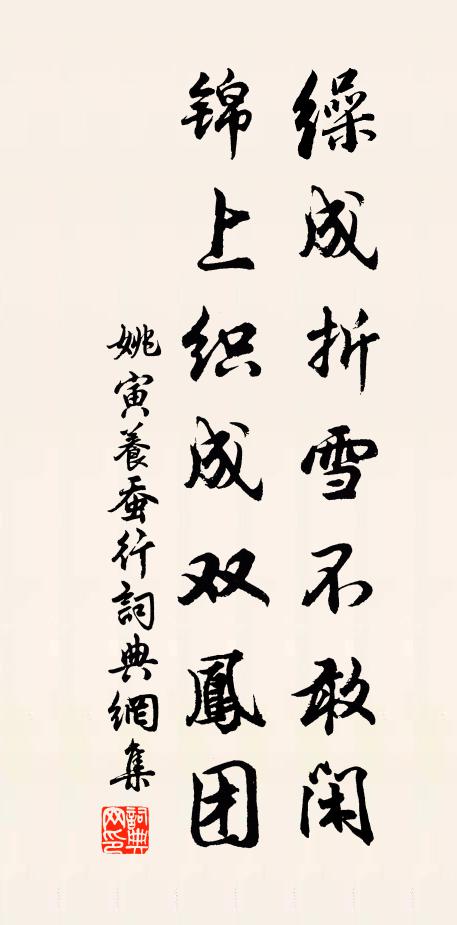 繰成折雪不敢闲
锦上织成双鳳团
姚寅養蚕行詞典網集
詞典网印